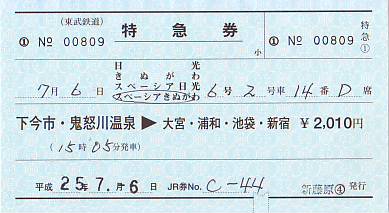 (東武鉄道) 特急券 特急①
① № 00809 小 ① № 00809
日光
きぬがわ
スペーシア日光
スペーシアきぬがわ
7月6日 6号 2号車 14番 D席
下今市・鬼怒川温泉 ▶ 大宮・浦和・池袋・新宿 ¥2,010円
(15時05分発車)
平成 25年 7.月-6日 JR券No. C-44 新藤原④ 発行